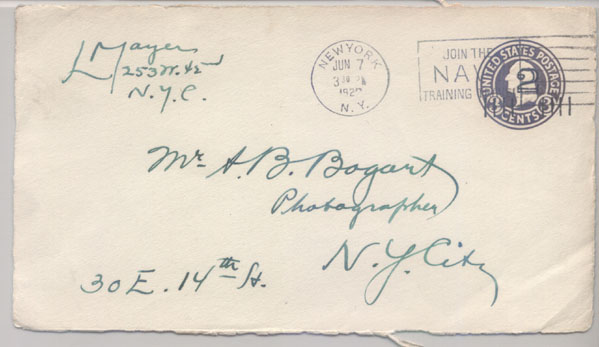 L Mayers
253 W. 42nd
N.Y.C.
NEW YORK
JUN 7
3
192
N.Y.
JOIN THE
NA
TRAINING
UNITED STATES POSTAGE
2
CENTS
Mr A. B. Bogart
Photographer
N.Y. City
30 E. 14th St.